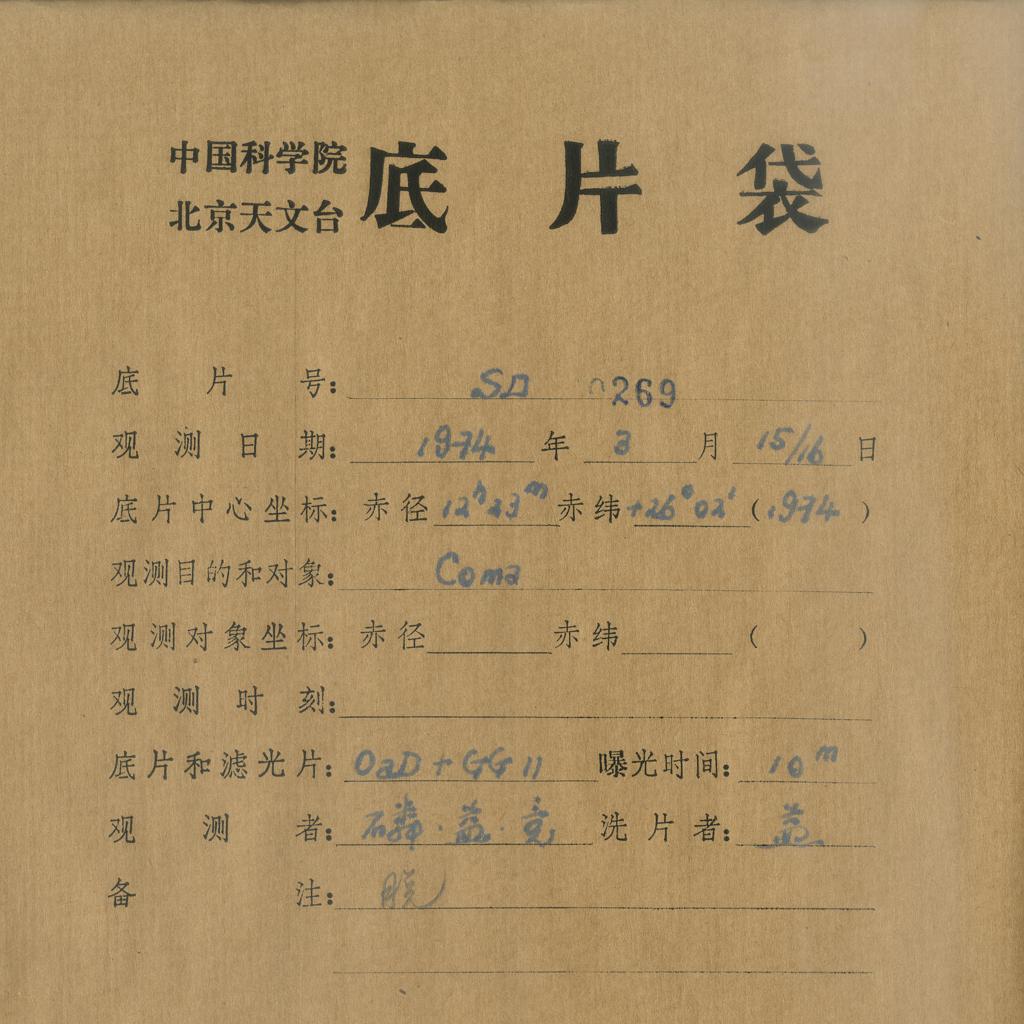 中国科学院
北京天文台 底片袋
底片号: SD 0269
观测日期: 1974 年 3 月 15/16 日
底片中心坐标: 赤径 12h23m 赤纬 +26°02′ (1974)
观测目的和对象: Coma
观测对象坐标: 赤径 赤纬 ( )
观测时刻:
底片和滤光片: OaD + GG 11 曝光时间: 10m
观测者: 磷·益·竞 洗片者: 益
备注: 脱